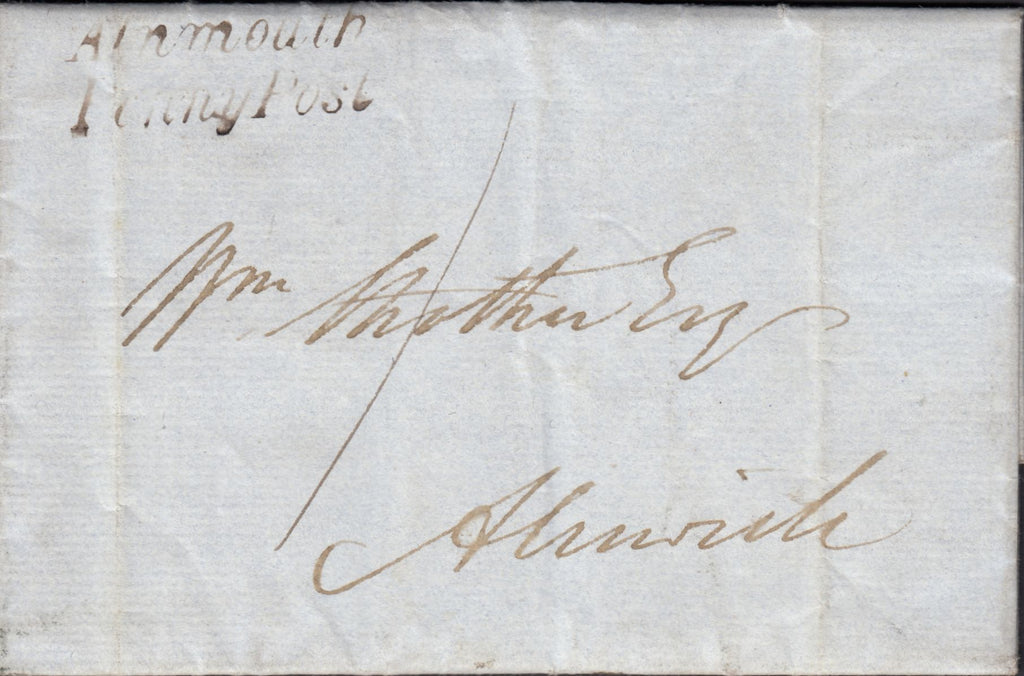 Alnmouth
Penny Post
Wm Strother Esq
Alnwick